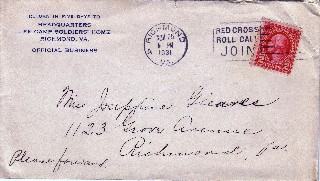 RETURN IN FIVE DAYS TO
HEADQUARTERS
LEE CAMP SOLDIERS' HOME
RICHMOND, VA.
OFFICIAL BUSINESS
RICHMOND
PM
1931
VA.
RED CROSS
ROLL CALL
JOIN
Miss Josephine Gleaves
1123 Grove Avenue
Richmond, Va.
Please forward